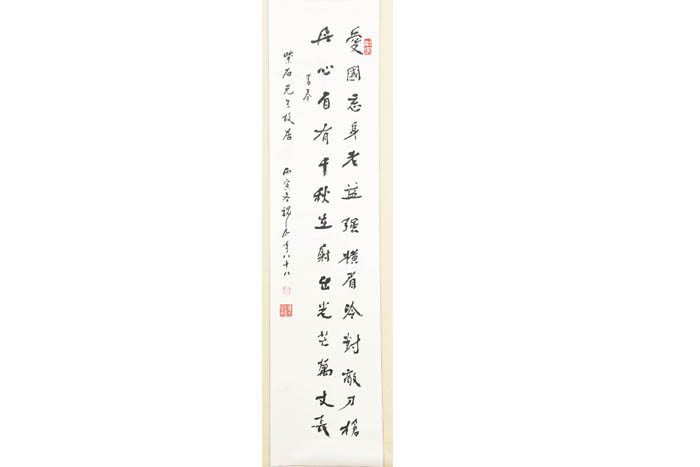 愛國忘身老益强橫眉冷對敵刀槍
丹心自有千秋在射出光芒萬丈長
書奉
紫石先生故居 丙寅冬 年八十八